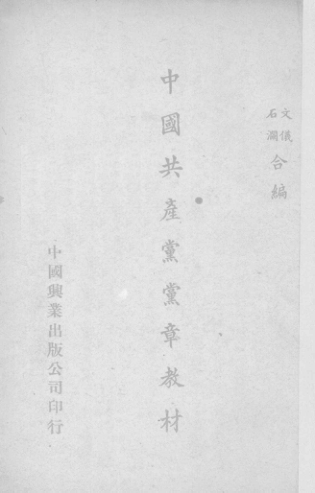 文儀
石瀾
合編
中國共產黨黨章教材
中國興業出版公司印行